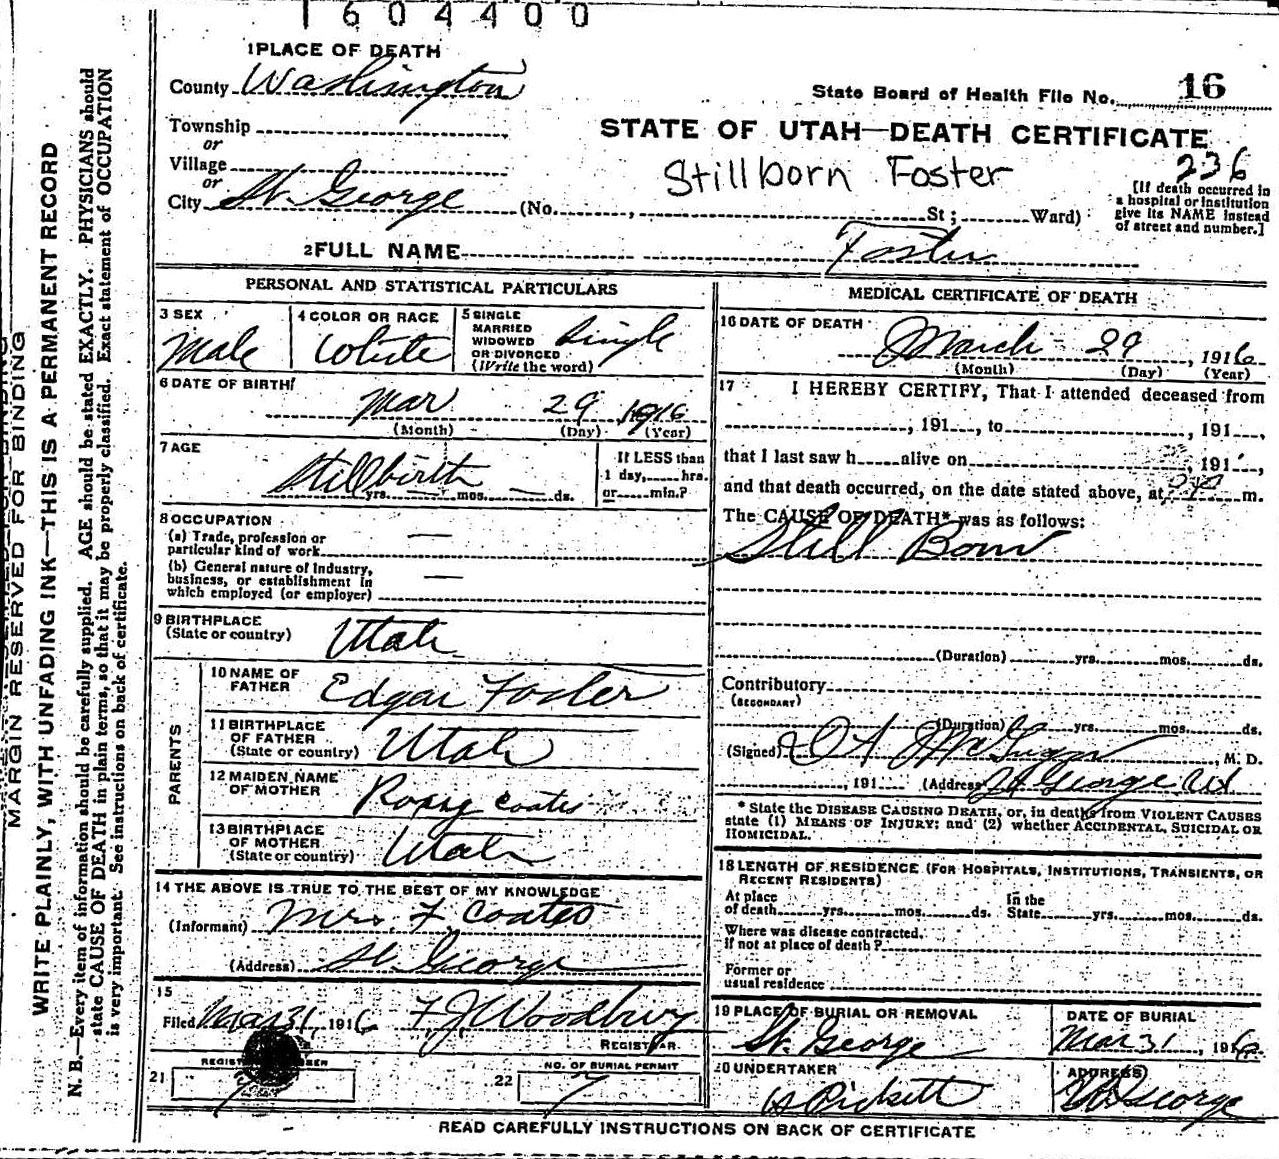 1604400
1 PLACE OF DEATH
County Washington
State Board of Health File No. 16
Township
or
Village
or
City St. George (No. , St ; Ward)
STATE OF UTAH—DEATH CERTIFICATE
Stillborn Foster
236
[If death occurred in
a hospital or institution
give its NAME instead
of street and number.]
2 FULL NAME Foster
PERSONAL AND STATISTICAL PARTICULARS
3 SEX
Male
4 COLOR OR RACE
White
5 SINGLE
MARRIED
WIDOWED
OR DIVORCED
(Write the word)
Single
6 DATE OF BIRTH
Mar 29 1916
(Month) (Day) (Year)
7 AGE
Stillbirth
yrs. — mos. — ds.
If LESS than
1 day, hrs.
or min.?
8 OCCUPATION
(a) Trade, profession or
particular kind of work —
(b) General nature of industry,
business, or establishment in
which employed (or employer) —
9 BIRTHPLACE
(State or country) Utah
PARENTS
10 NAME OF
FATHER Edgar Foster
11 BIRTHPLACE
OF FATHER
(State or country) Utah
12 MAIDEN NAME
OF MOTHER Coates
13 BIRTHPLACE
OF MOTHER
(State or country) Utah
14 THE ABOVE IS TRUE TO THE BEST OF MY KNOWLEDGE
(Informant) Mrs. F Coates
(Address) St. George
15
Filed Mar 31, 1916 F. J. Woodbury
REGISTRAR
21 7
NO. OF BURIAL PERMIT
22 7
MEDICAL CERTIFICATE OF DEATH
16 DATE OF DEATH
March 29, 1916
(Month) (Day) (Year)
17 I HEREBY CERTIFY, That I attended deceased from
, 191 , to , 191 ,
that I last saw h alive on , 191 ,
and that death occurred, on the date stated above, at m.
The CAUSE OF DEATH* was as follows:
Still Born
(Duration) yrs. mos. ds.
Contributory
(SECONDARY)
(Duration) yrs. mos. ds.
(Signed) , M. D.
, 191 (Address) St George Ut
* State the DISEASE CAUSING DEATH, or, in deaths from VIOLENT CAUSES
state (1) MEANS OF INJURY; and (2) whether ACCIDENTAL, SUICIDAL OR
HOMICIDAL.
18 LENGTH OF RESIDENCE (FOR HOSPITALS, INSTITUTIONS, TRANSIENTS, OR
RECENT RESIDENTS)
At place
of death yrs. mos. ds.
In the
State yrs. mos. ds.
Where was disease contracted,
if not at place of death?
Former or
usual residence
19 PLACE OF BURIAL OR REMOVAL
St. George
DATE OF BURIAL
Mar 31, 1916
20 UNDERTAKER
Pickett
ADDRESS
St George
READ CAREFULLY INSTRUCTIONS ON BACK OF CERTIFICATE
MARGIN RESERVED FOR BINDING
WRITE PLAINLY, WITH UNFADING INK—THIS IS A PERMANENT RECORD
N. B.—Every item of information should be carefully supplied. AGE should be stated EXACTLY. PHYSICIANS should
state CAUSE OF DEATH in plain terms, so that it may be properly classified. Exact statement of OCCUPATION
is very important. See instructions on back of certificate.